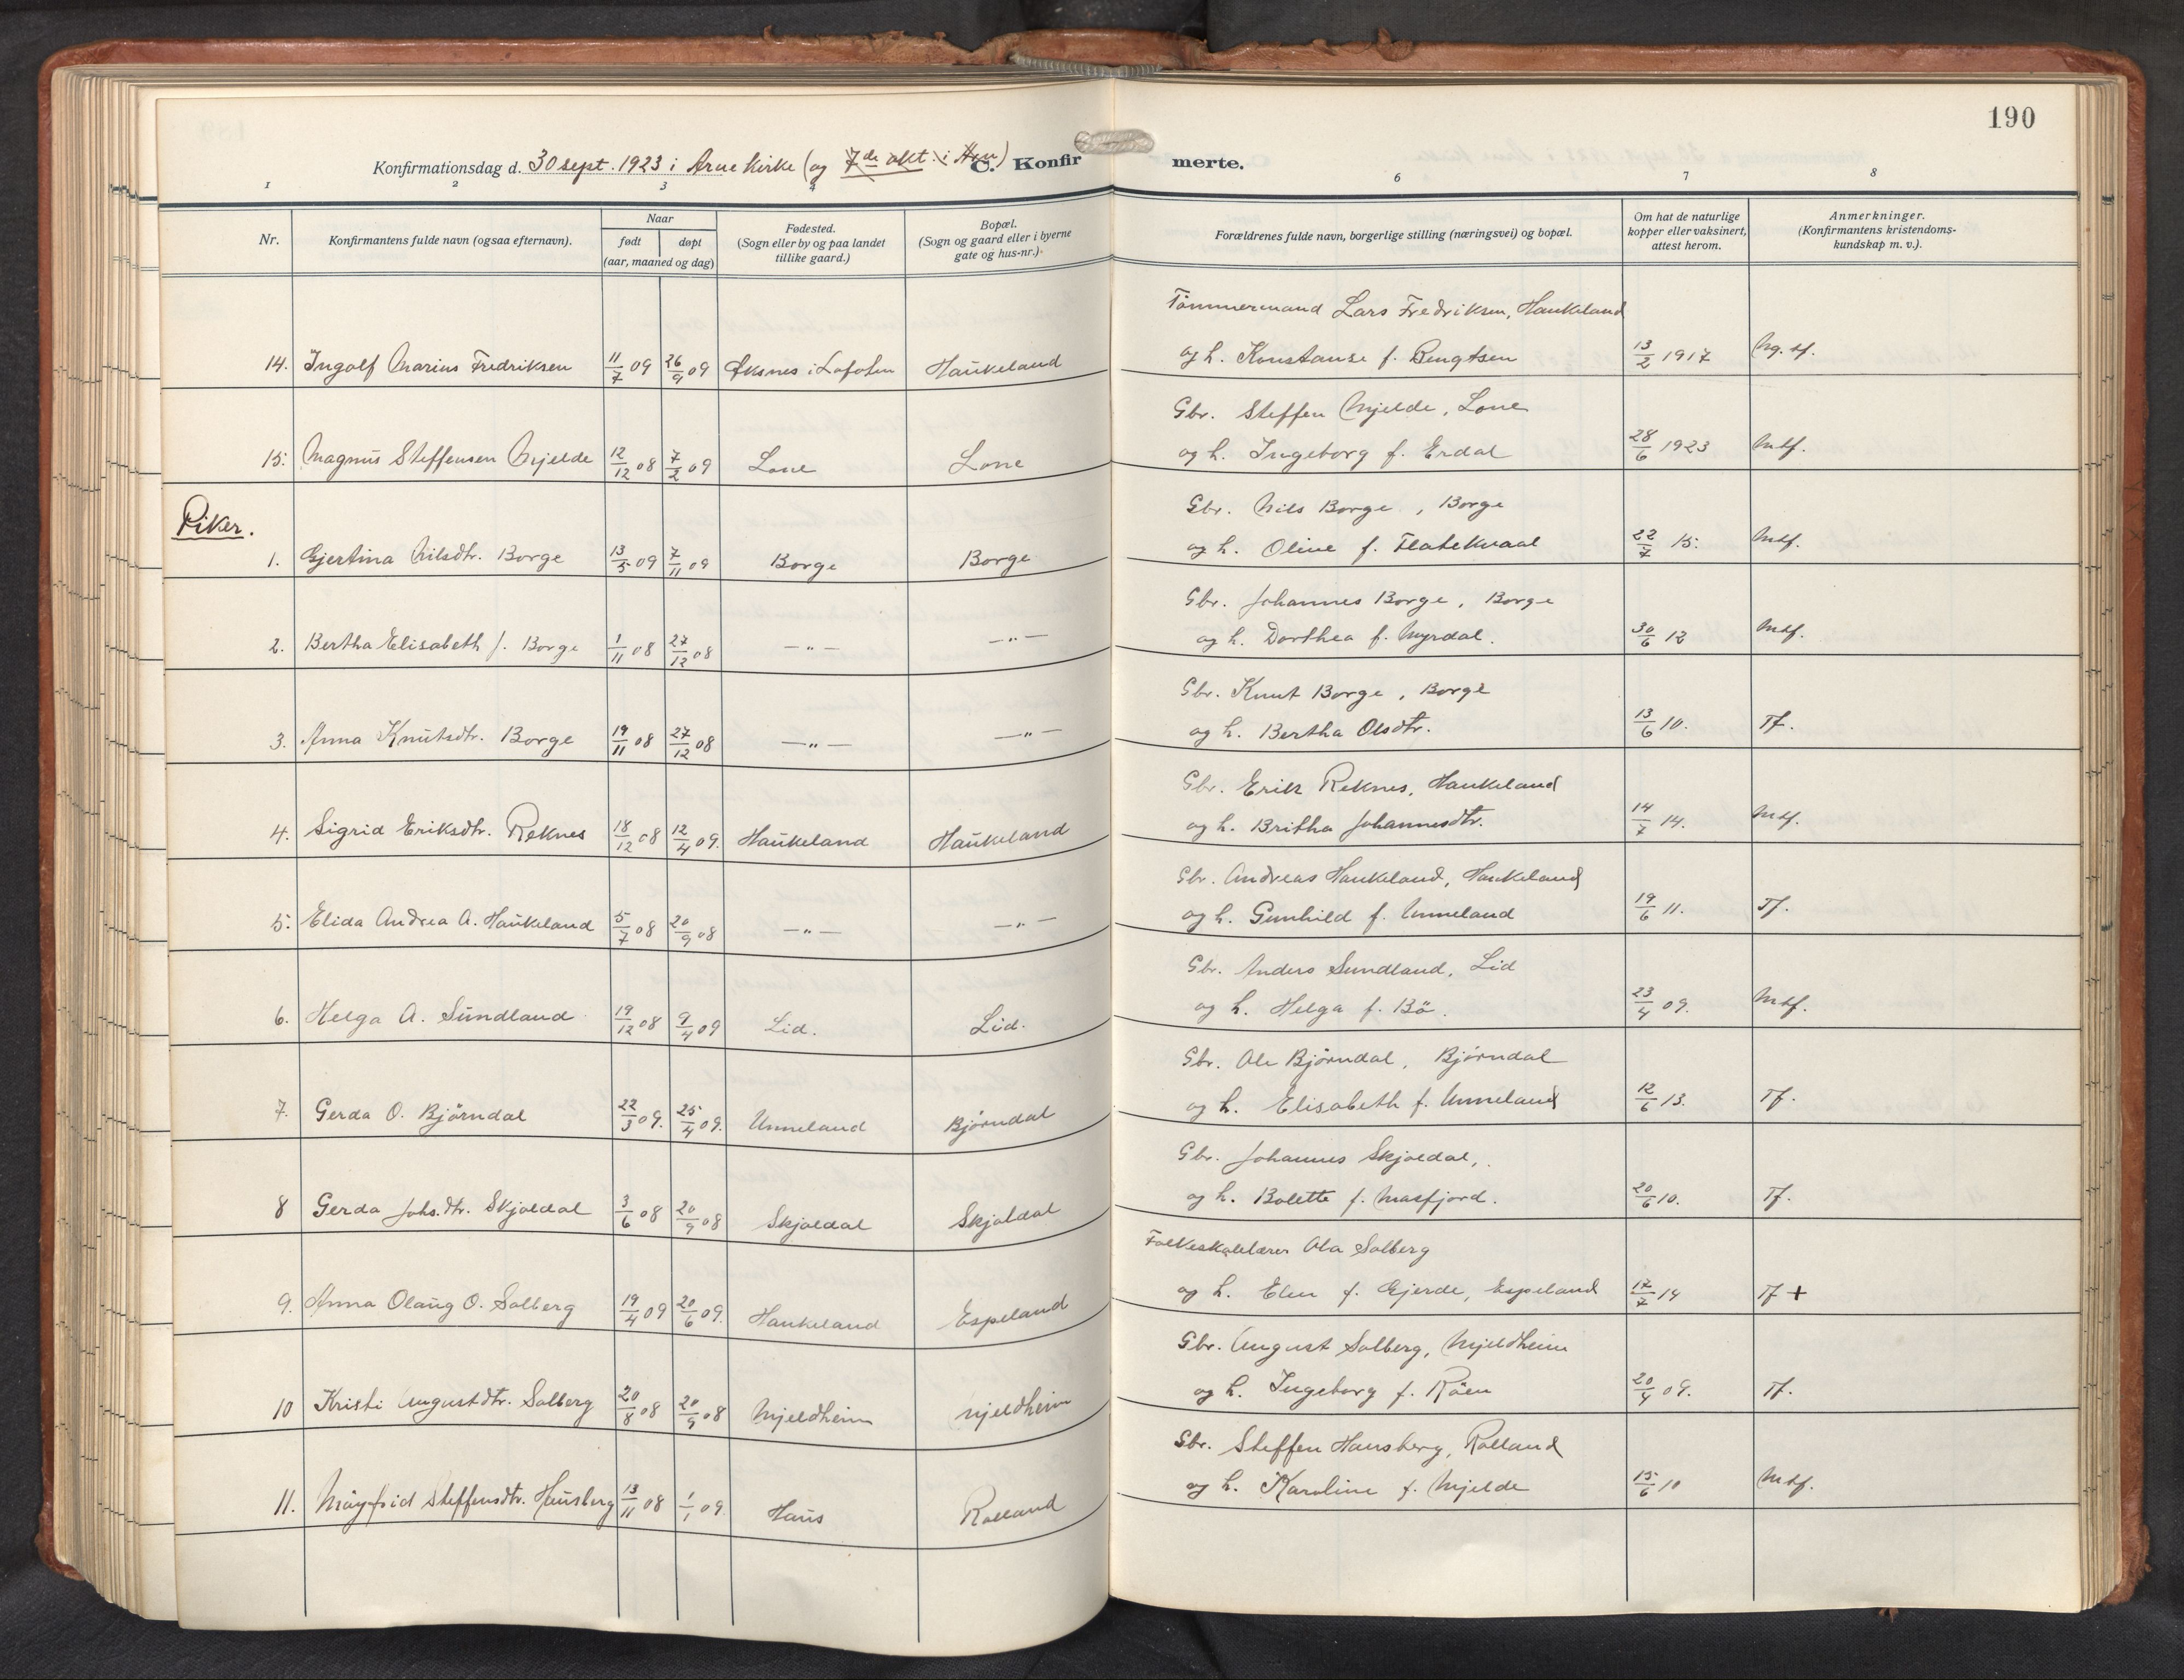 190
Konfirmationsdag d. 30 sept. 1923 i Arne Kirke (og 7de okt. i Hau) C. Konfirmerte.
1 2 3 4 6 7 8
Nr. Konfirmantens fulde navn (ogsaa efternavn). Naar født døpt (aar, maaned og dag) Fødested. (Sogn eller by og paa landet tillike gaard.) Bopæl. (Sogn og gaard eller i byerne gate og hus-nr.) Forældrenes fulde navn, borgerlige stilling (næringsvei) og bopæl. Om hat de naturlige kopper eller vaksinert, attest herom. Anmerkninger. (Konfirmantens kristendoms-kundskap m. v.).
Tømmermand Lars Fredriksen, Haukeland
14. Ingolf Marius Fredriksen 11/7 09 26/9 09 Øksnes i Lofoten Haukeland og h. Konstanse f. Bengtsen 13/2 1917 Mg. tf.
Gbr. Steffen Mjelde, Lone
15. Magnus Steffensen Mjelde 12/12 08 7/2 09 Lone Lone og h. Ingeborg f. Erdal 28/6 1923 Mtf.
Piker.
Gbr. Nils Borge, Borge
1. Gjertina Nilsdtr. Borge 13/5 09 7/11 09 Borge Borge og h. Oline f. Flatekvaal 22/7 15. Mtf.
Gbr. Johannes Borge, Borge
2. Bertha Elisabeth J. Borge 1/11 08 27/12 08 —„— —„— og h. Dorthea f. Myrdal. 30/6 12 Mtf.
Gbr. Knut Borge, Borge
3. Anna Knutsdtr. Borge 19/11 08 27/12 08 —„— —„— og h. Bertha Olsdtr. 13/6 10. Tf.
Gbr. Erik Reknes, Haukeland
4. Sigrid Eriksdtr. Reknes 18/12 08 12/4 09. Haukeland Haukeland og h. Britha Johannesdtr. 14/7 14. Mtf.
Gbr. Andreas Haukeland, Haukeland
5. Elida Andrea A. Haukeland 5/7 08 20/9 08 —„— —„— og h. Gunhild f. Unneland 19/6 11. Tf.
Gbr. Anders Sundland, Lid
6. Helga A. Sundland 19/12 08 9/4 09 Lid. Lid. og h. Helga f. Bö. 23/4 09. Mtf.
Gbr. Ole Björndal, Björndal
7. Gerda O. Björndal 22/3 09. 25/4 09. Unneland Björndal og h. Elisabeth f. Unneland 12/6 13. Tf.
Gbr. Johannes Skjoldal,
8 Gerda Johs.dtr. Skjoldal 3/6 08 20/9 08 Skjoldal Skjoldal og h. Bolette f. Masfjord. 20/6 10. Tf.
Folkeskolelærer Ola Solberg
9. Anna Olaug O. Solberg 19/4 09 20/6 09. Haukeland Espeland og h. Elen f. Gjerde, Espeland 17/7 14 Tf +
Gbr. August Solberg, Mjeldheim
10 Kristi Augustdtr. Solberg 20/8 08 20/9 08 Mjeldheim Mjeldheim og h. Ingeborg f. Röen 20/4 09. Tf.
Gbr. Steffen Hausberg, Rolland
11. Mayfrid Steffensdtr. Hausberg 13/11 08 1/1 09. Haus Rolland og h. Karoline f. Mjelde 15/6 10 Mtf.